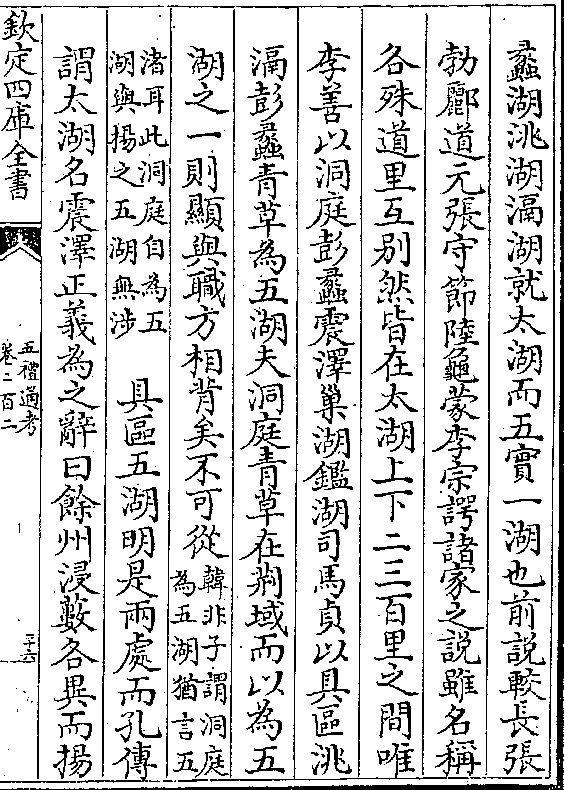 蠡湖洮湖滆湖就太湖而五實一湖也前說較長張
勃酈道元張守節陸龜蒙李宗諤諸家之說雖名稱
各殊道里互別然皆在太湖上下二三百里之間唯
李善以洞庭彭蠡震澤巢湖鑑湖司馬貞以具區洮
滆彭蠡青草為五湖夫洞庭青草在荆域而以為五
湖之一則顯與職方相背矣不可從韓非子謂洞庭
為五湖猶言五
渚耳此洞庭自為五
湖與揚之五湖無涉　具區五湖明是兩處而孔傳
謂太湖名震澤正義為之辭曰餘州浸藪各異而揚
欽定四庫全書
五禮通考
卷二百二
三六